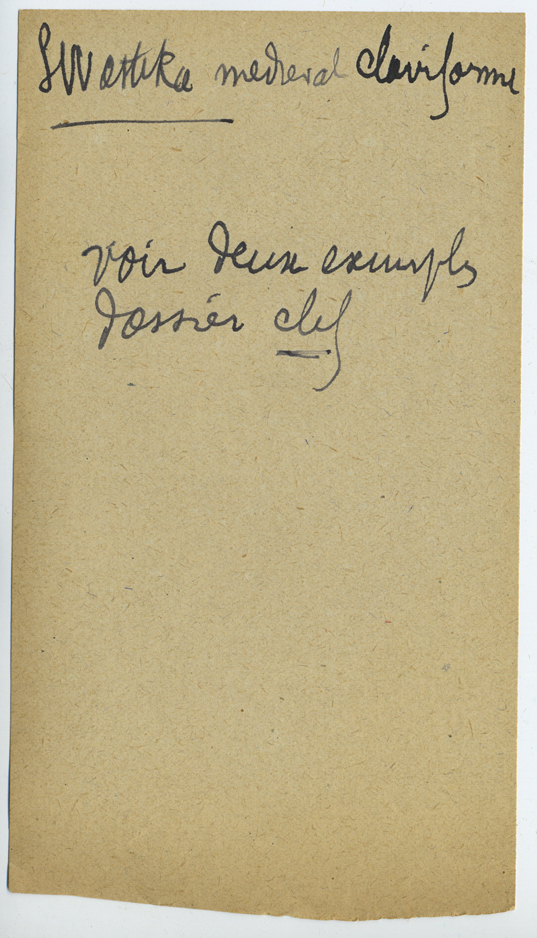 Swastika medieval claviforme
voir deux exemples
dossier clef